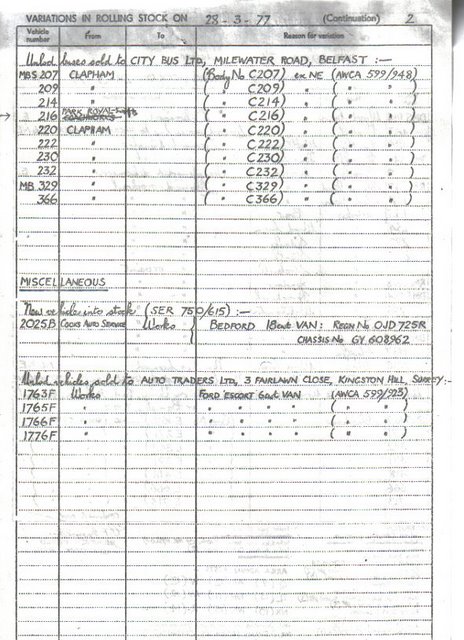 VARIATIONS IN ROLLING STOCK ON 28-3-77 (Continuation) 2
Vehicle number From To Reason for variation
Unlicd buses sold to CITY BUS LTD, MILEWATER ROAD, BELFAST :—
MBS 207 CLAPHAM (Body No C207) ex NE (AWCA 599/948)
209 " ( " C209) " ( " " )
214 " ( " C214) " ( " " )
216 PARK ROYAL ( " C216) " ( " " )
220 CLAPHAM ( " C220) " ( " " )
222 " ( " C222) " ( " " )
230 " ( " C230) " ( " " )
232 " ( " C232) " ( " " )
MB 329 " ( " C329) " ( " " )
366 " ( " C366) " ( " " )
MISCELLANEOUS
New vehicle into stock (SER 750/615) :—
2025B COOKS AUTO SERVICE Works BEDFORD 18cwt VAN: REGN No OJD 725R
CHASSIS No GY 608962
Unlicd vehicles sold to AUTO TRADERS LTD, 3 FAIRLAWN CLOSE, KINGSTON HILL, SURREY:-
1763F Works FORD ESCORT 6cwt VAN (AWCA 599/925)
1765F " " " " " ( " " )
1766F " " " " " ( " " )
1776F " " " " " ( " " )